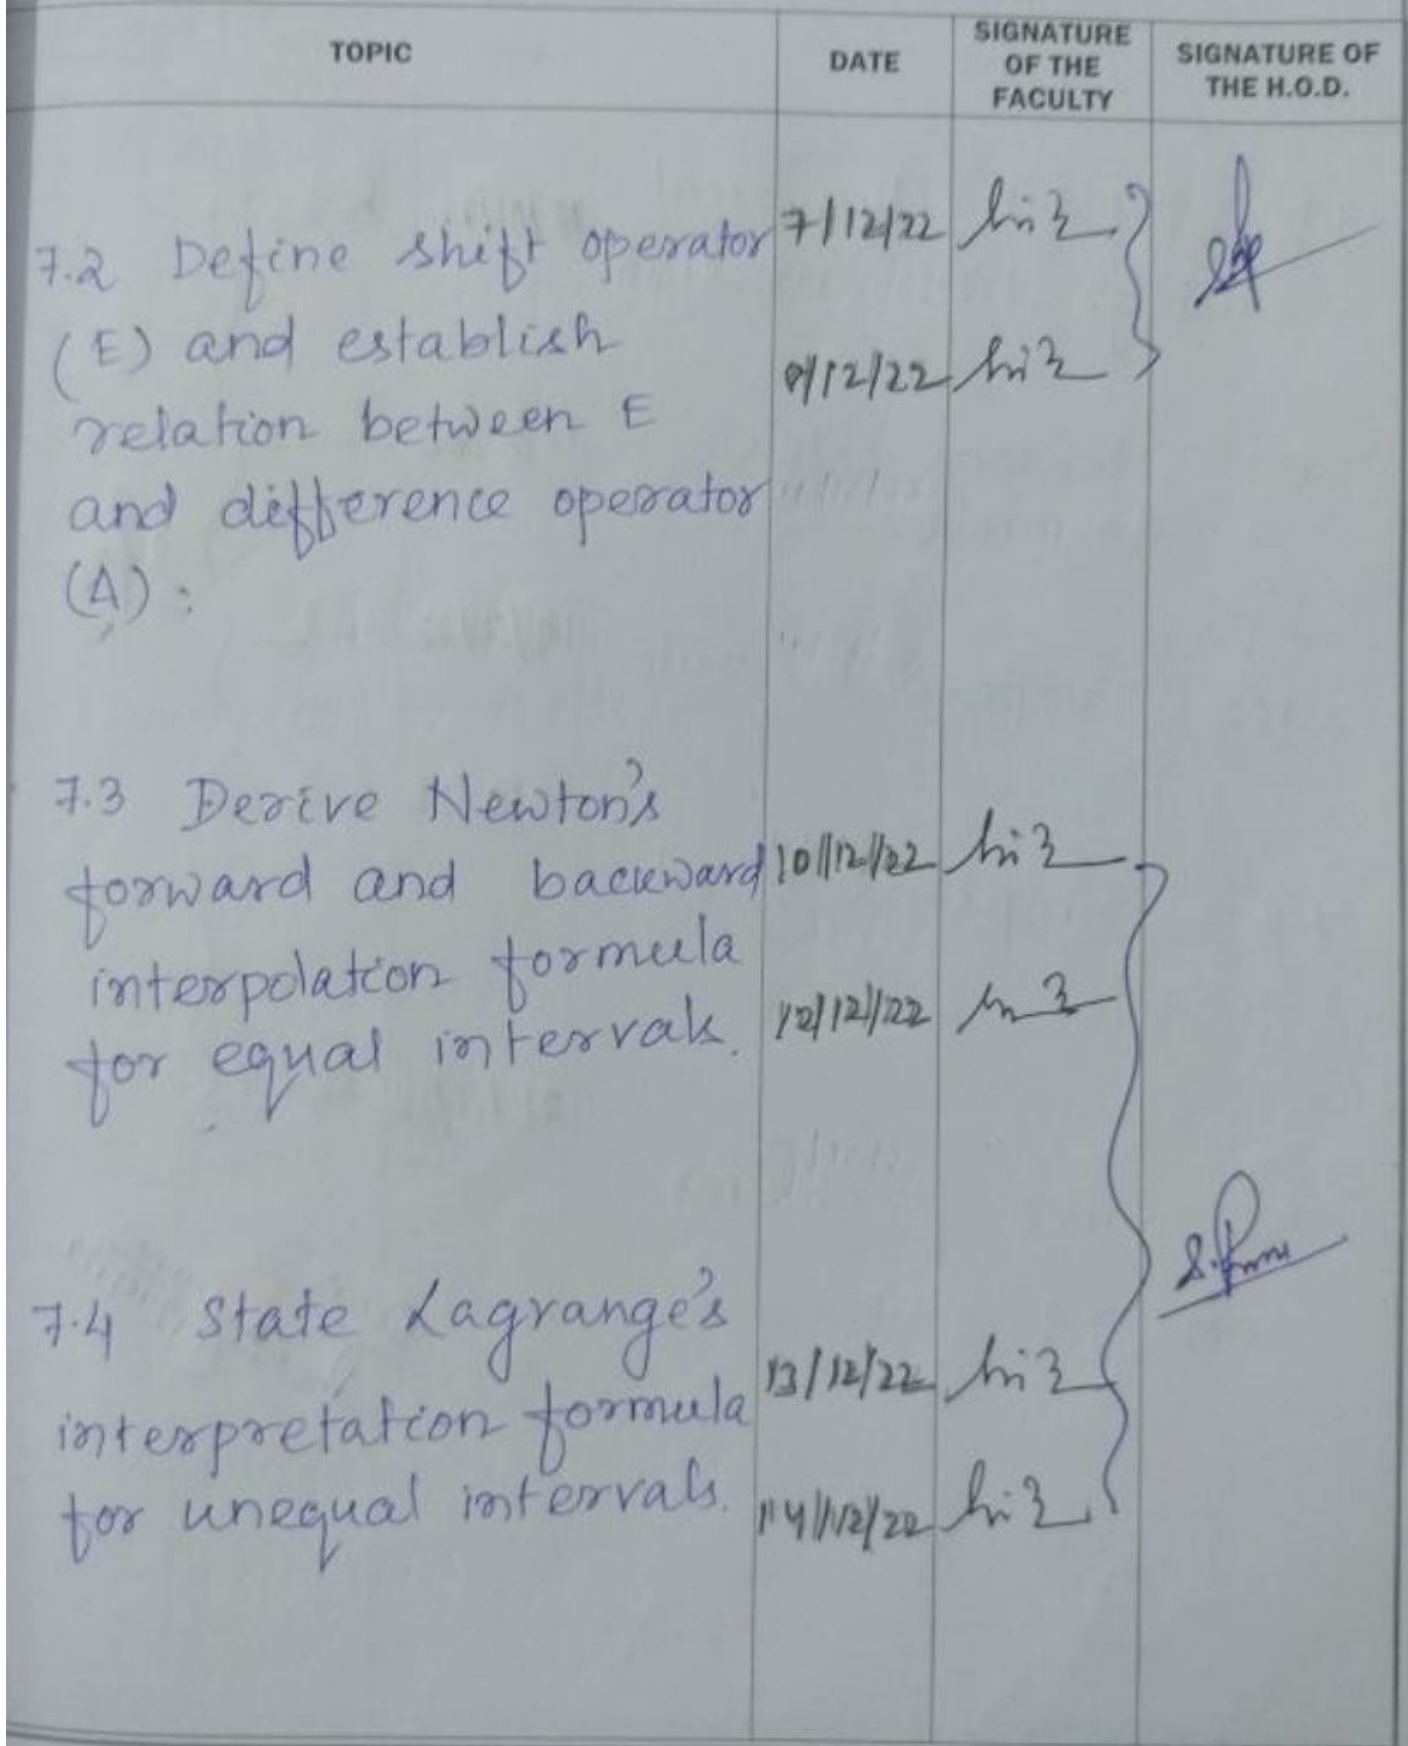 TOPIC
DATE
SIGNATURE
OF THE
FACULTY
SIGNATURE OF
THE H.O.D.
7.2 Define shift operator
(E) and establish
relation between E
and difference operator
(Δ):
7/12/22
9/12/22
7.3 Derive Newton's
forward and backward
interpolation formula
for equal intervals.
10/12/22
12/12/22
7.4 State Lagrange's
interpretation formula
for unequal intervals.
13/12/22
14/12/22